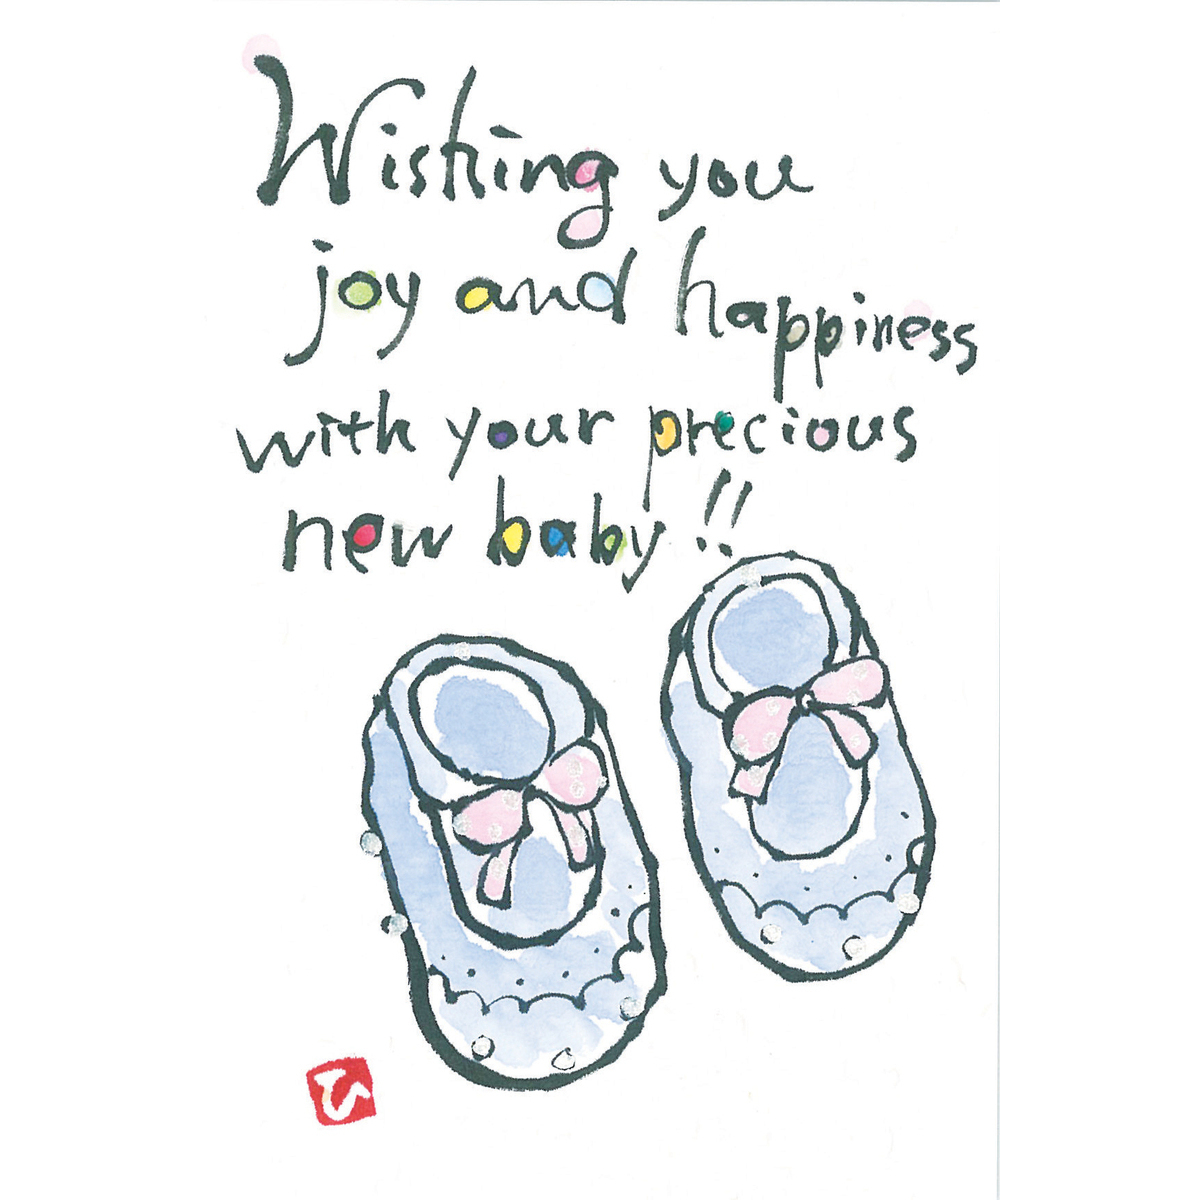 Wishing you
joy and happiness
with your precious
new baby!!
ひ